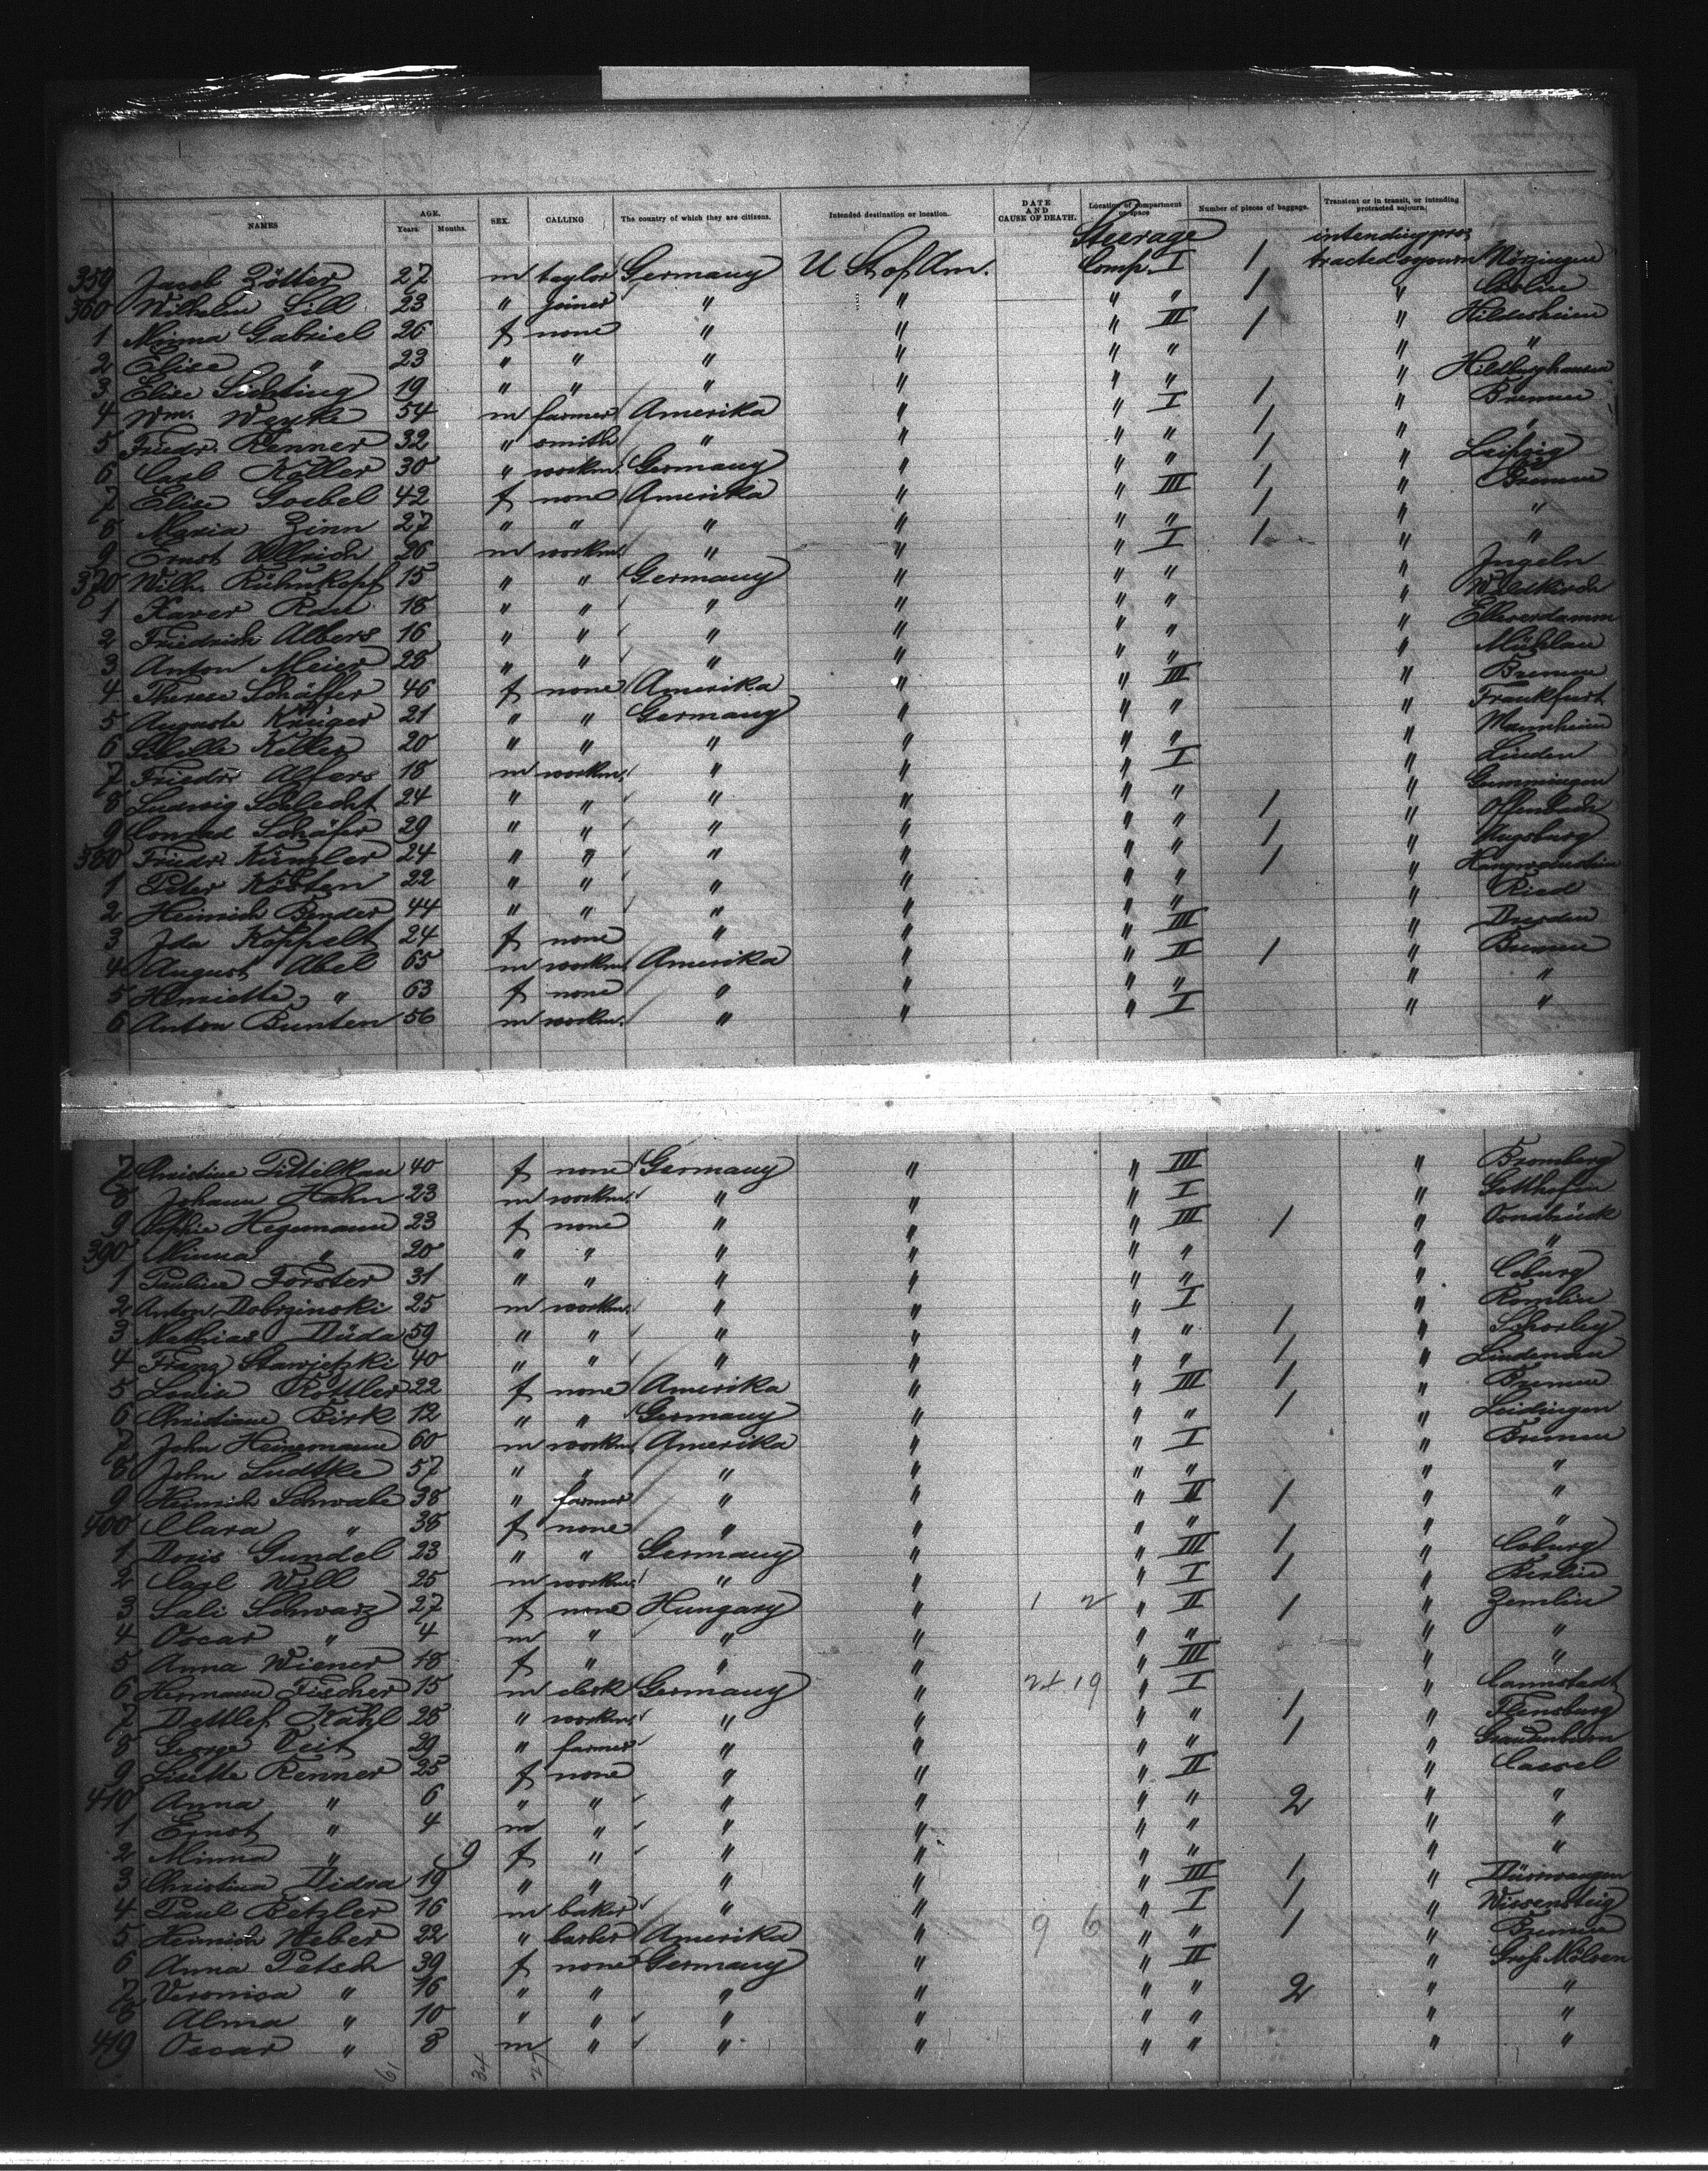 NAMES AGE. Years. Months. SEX. CALLING The country of which they are citizens. Intended destination or location. DATE AND CAUSE OF DEATH. Location of compartment or space Number of pieces of baggage. Transient or in transit, or intending protracted sojourn.
Steerage intending pro-
359 Jacob 27 m taylor Germany U St. of Am. Comp. I 1 tracted sojourn
360 Wilhelm Sill 23 " joiner " " " " 1 "
1 Minna Gabriel 26 f none " " " III 1 " Hildesheim
2 Elise " 23 " " " " " " " "
3 Elise Sichting 19 " " " " " " " Hildburghausen
4 Wm. 54 m farmer Amerika " " I 1 " Bremen
5 Friedr. Renner 32 " smith " " " " 1 " "
6 Carl Köller 30 " workm. Germany " " " 1 " Leipzig
7 Elise Goebel 42 f none Amerika " " III 1 " Bremen
8 Maria Zinn 27 " " " " " " 1 " "
9 Ernst Ullrich 26 m workm. " " " I 1 " "
370 Wilh. Rühmkopf 15 " " Germany " " " " Ingeln
1 Xaver 18 " " " " " " " Waldkirch
2 Friedrich Albers 16 " " " " " " " Ellenerdamm
3 Anton Meier 28 " " " " " " " Mühlau
4 Therese Schäffer 46 f none Amerika " " III " Bremen
5 Auguste Krüger 21 " " Germany " " " " Frankfurt
6 Keller 20 " " " " " " " Mannheim
7 Friedr. Alfers 18 m workm. " " " I " Linden
8 Ludwig Schlecht 24 " " " " " " 1 "
9 Conrad Schäfer 29 " " " " " " 1 " Offenbach
380 Friedr. Künzler 24 " " " " " " 1 " Augsburg
1 Peter Kösten 22 " " " " " " "
2 Heinrich Bender 44 " " " " " " " Ried
3 Ida Köppelt 24 f none " " " III " Dresden
4 August Abel 65 m workm. Amerika " " II 1 " Bremen
5 Henriette " 63 f none " " " " " "
6 Anton Bunten 56 m workm. " " " I " "
7 Christine Pittelkau 40 f none Germany " " III " Bromberg
8 Johann Hahn 23 m workm. " " " I "
9 Sophie Hegemann 23 f none " " " III 1 " Osnabrück
390 Minna " 20 " " " " " " " "
1 Pauline Forster 31 " " " " " " " Coburg
2 Anton Dobrzinski 25 m workm. " " " I "
3 Mathias Düda 59 " " " " " " 1 "
4 Franz 40 " " " " " " 1 " Lindenau
5 Louia Röttler 22 f none Amerika " " III 1 " Bremen
6 Christiane Birk 12 " " Germany " " " 1 " Leidingen
7 John Heinemann 60 m workm. Amerika " " I " Bremen
8 John Ludtke 57 " " " " " " " "
9 Heinrich Schwabe 38 " farmer " " " II 1 " "
400 Clara " 38 f none " " " " " "
1 Doris Gundel 23 " " Germany " " III 1 " Coburg
2 Carl Will 25 m workm. " " " I 1 " Berlin
3 Sali Schwarz 27 f none Hungary " 1 2 " II 1 " Zemlin
4 Oscar " 4 m " " " " " " "
5 Anna Wiener 18 f " " " " III " "
6 Hermann Fischer 15 m clerk Germany " 24 19 " I " Cannstadt
7 Dettlef Kahl 28 " workm. " " " " 1 " Flensburg
8 George Veit 29 " farmer " " " " 1 "
9 Lisette Renner 25 f none " " " II " Cassel
410 Anna " 6 " " " " " " 2 " "
1 Ernst " 4 m " " " " " " "
2 Minna " 9 f " " " " " " "
3 Christina Didra 19 " " " " " III 1 " Dürrwangen
4 Paul Betzler 16 m baker " " " I 1 " Wiesensteig
5 Heinrich Weber 22 " barber Amerika " 9 6 " " 1 " Bremen
6 Anna Petsch 39 f none Germany " " II " Gross Mölsen
7 Veronica " 16 " " " " " " 2 " "
8 Alma " 10 " " " " " " " "
419 Oscar " 8 m " " " " " " "
61 34 27